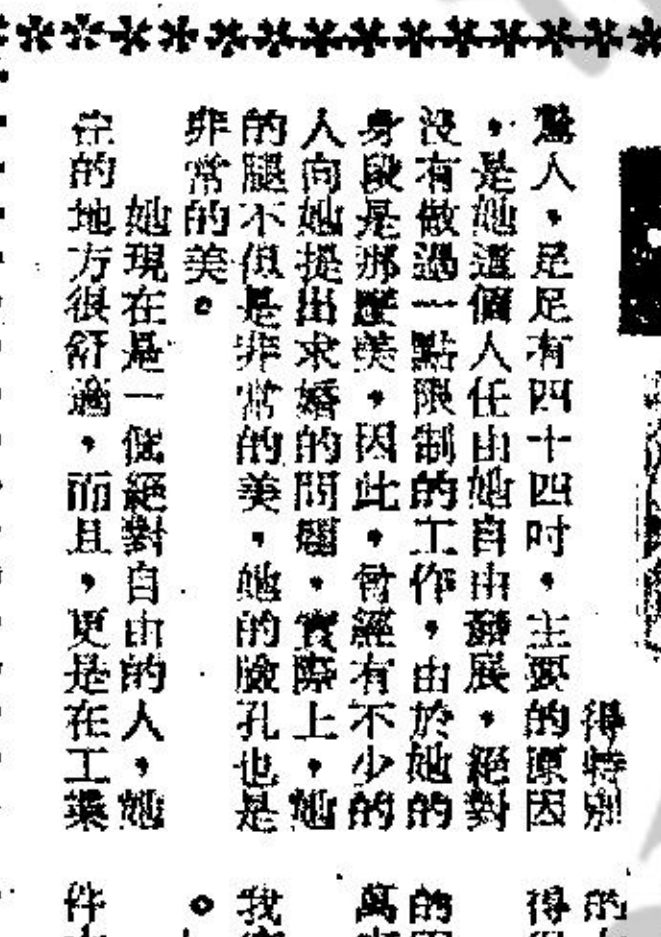 得特別
驚人，足足有四十四吋，主要的原因
，是她這個人任由她自由發展，絕對
沒有做過一點限制的工作，由於她的
身段是那麼美，因此，曾經有不少的
人向她提出求婚的問題，實際上，她
的腿不但是非常的美，她的臉孔也是
非常的美。
她現在是一個絕對自由的人，她
住的地方很舒適，而且，更是在工業
的
得
的
萬
我
。
件